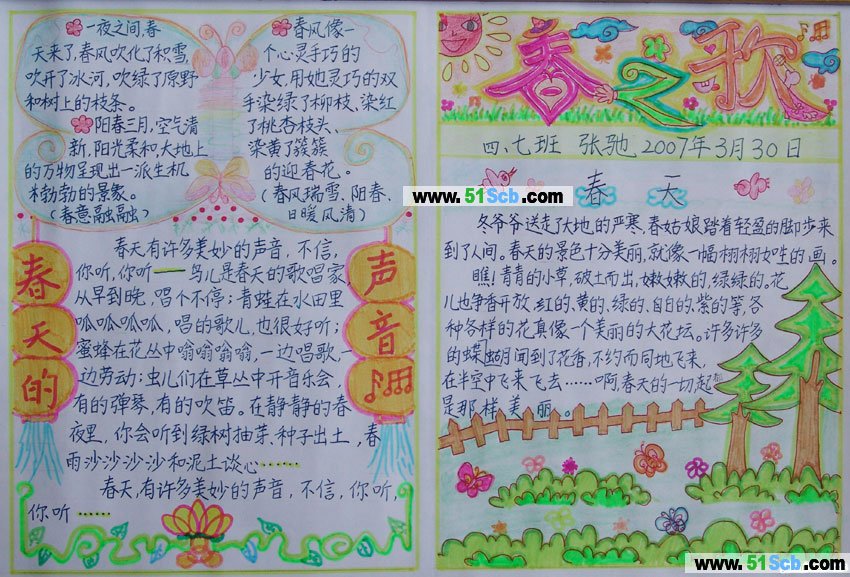 一夜之间,春
天来了,春风吹化了积雪,
吹开了冰河,吹绿了原野
和树上的枝条。
阳春三月,空气清
新,阳光柔和,大地上
的万物呈现出一派生机
勃勃的景象。
(春意融融)
春风像一
个心灵手巧的
少女,用她灵巧的双
手染绿了柳枝、染红
了桃杏枝头、
染黄了簇簇
的迎春花。
(春风瑞雪、阳春、
日暖风清)
春天的
声音
春天有许多美妙的声音,不信,
你听,你听——鸟儿是春天的歌唱家,
从早到晚,唱个不停;青蛙在水田里
呱呱呱呱,唱的歌儿,也很好听;
蜜蜂在花丛中嗡嗡嗡嗡,一边唱歌,一
边劳动;虫儿们在草丛中开音乐会,
有的弹琴,有的吹笛。在静静的春
夜里,你会听到绿树抽芽,种子出土,春
雨沙沙沙沙和泥土谈心……
春天,有许多美妙的声音,不信,你听,
你听……
春之歌
四.七班 张驰 2007年3月30日
春天
冬爷爷送走了大地的严寒,春姑娘踏着轻盈的脚步来
到了人间。春天的景色十分美丽,就像一幅栩栩如生的画。
瞧!青青的小草,破土而出,嫩嫩的,绿绿的。花
儿也争香开放,红的、黄的、绿的、白的、紫的等,各
种各样的花真像一个美丽的大花坛。许多许多
的蝶间到了花香,不约而同地飞来,
在半空中飞来飞去……啊,春天的一切起
是那样美丽。
www.51Scb.com
www.51Scb.com